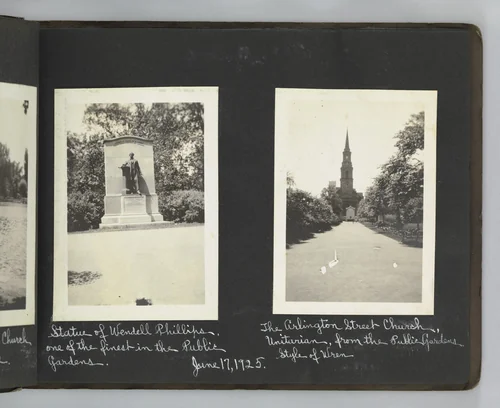 Church
Statue of Wendell Phillips,
one of the finest in the Public
Gardens.
June 17, 1925.
The Arlington Street Church,
Unitarian, from the Public Gardens
Style of Wren